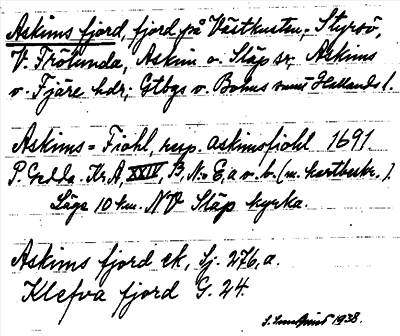 Askims fjord, fjord på Västkusten; Styrsö,
V. Frölunda, Askim o. Släp sr; Askims
o. Fjäre hdr; Gtbgs o. Bohus samt Hallands l.
Askims = Fiohl, resp. askimsfiohl 1691.
P. Gedda. Kr.A, XXIV, B, N:o E, a o. b. (m. kartbeskr.).
Läge 10 km. NV Släp kyrka.
Askims fjord ek, Sj. 276, a.
Klefva fjord G. 24.
1938.